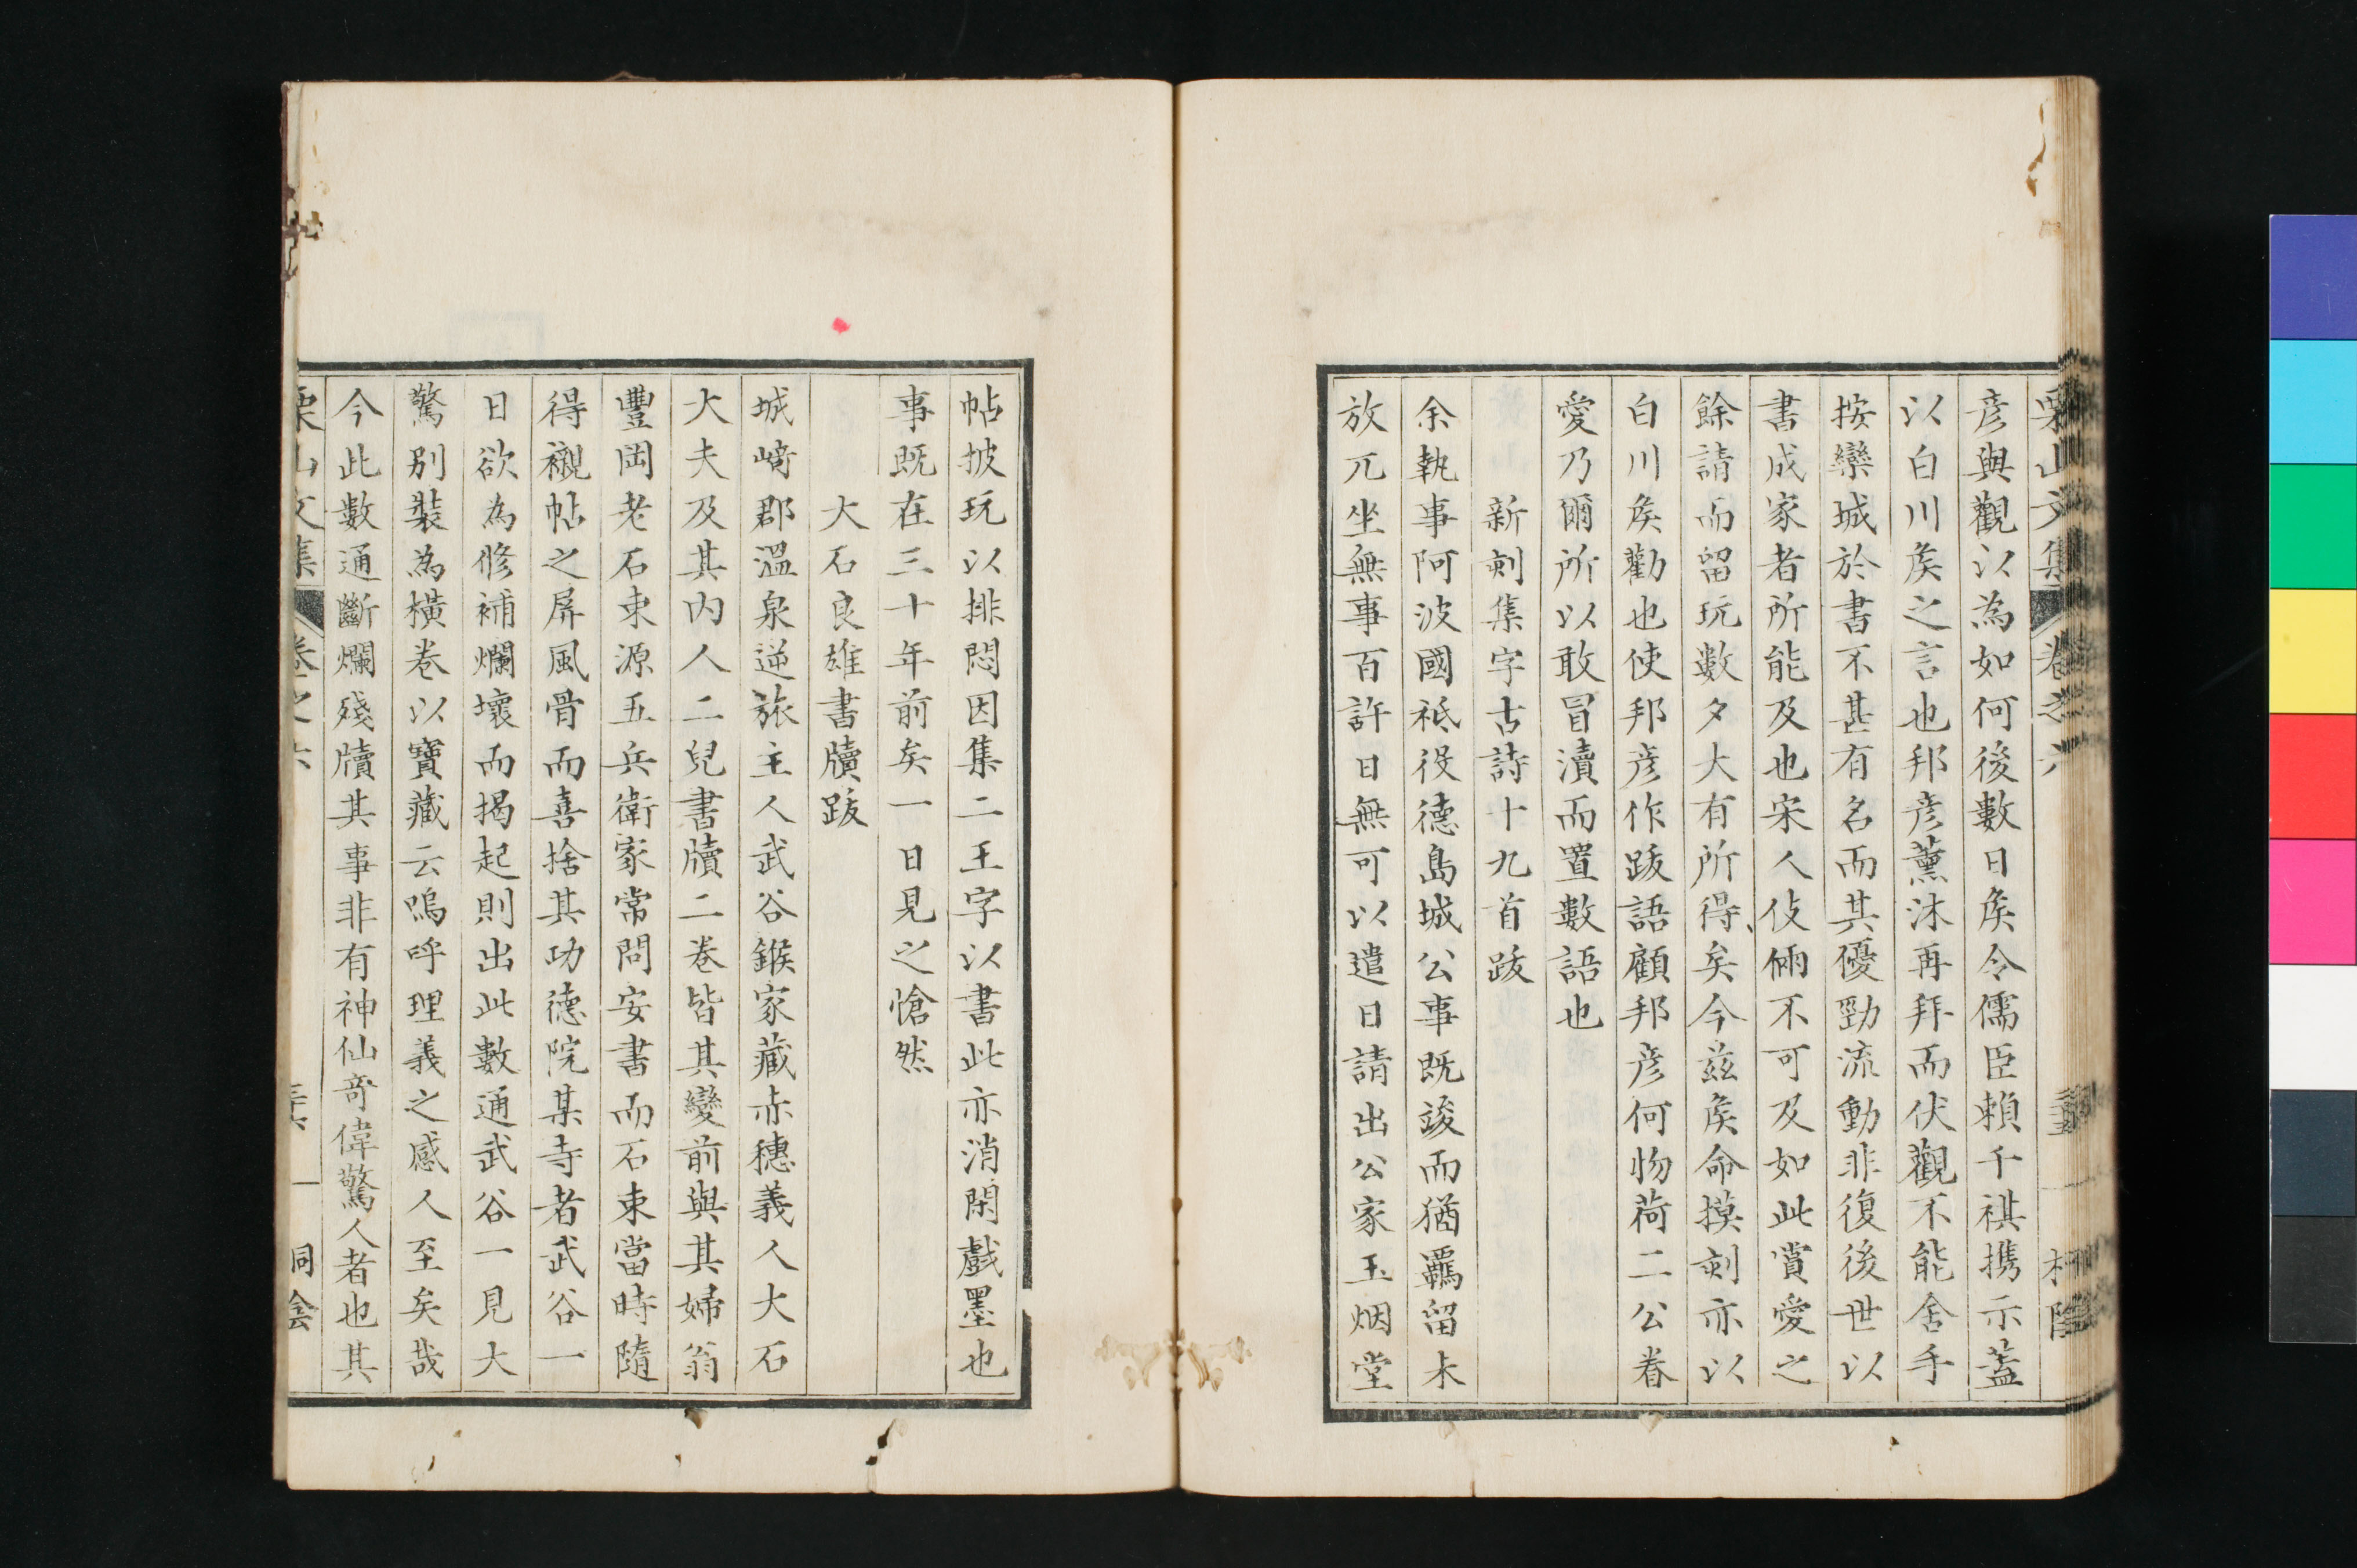 栗山文集 卷之六
彦與觀以為如何後數日矦令儒臣頼千祺携示蓋
以白川矦之言也邦彦薰沐再拜而伏觀不能舍手
按欒城於書不甚有名而其優勁流動非復後世以
書成家者所能及也宋人伎倆不可及如此賞愛之
餘請而留玩數夕大有所得矣今兹矦命摸刻亦以
白川矦勸也使邦彦作跋語顧邦彦何物荷二公眷
愛乃爾所以敢冒瀆而置數語也
新刻集字古詩十九首跋
余執事阿波國祗役德島城公事既竣而猶羈留未
放兀坐無事百許日無可以遣日請出公家玉烟堂
帖披玩以排悶因集二王字以書此亦消閑戲墨也
事既在三十年前矣一日見之愴然
大石良雄書牘跋
城崎郡溫泉逆旅主人武谷鍭家藏赤穗義人大石
大夫及其內人二兒書牘二卷皆其變前與其婦翁
豐岡老石束源五兵衛家常問安書而石束當時隨
得襯帖之屏風骨而喜捨其功德院某寺者武谷一
日欲為修補爛壞而揭起則出此數通武谷一見大
驚別裝為橫卷以寶藏云嗚呼理義之感人至矣哉
今此數通斷爛殘牘其事非有神仙奇偉驚人者也其
栗山文集 卷之六